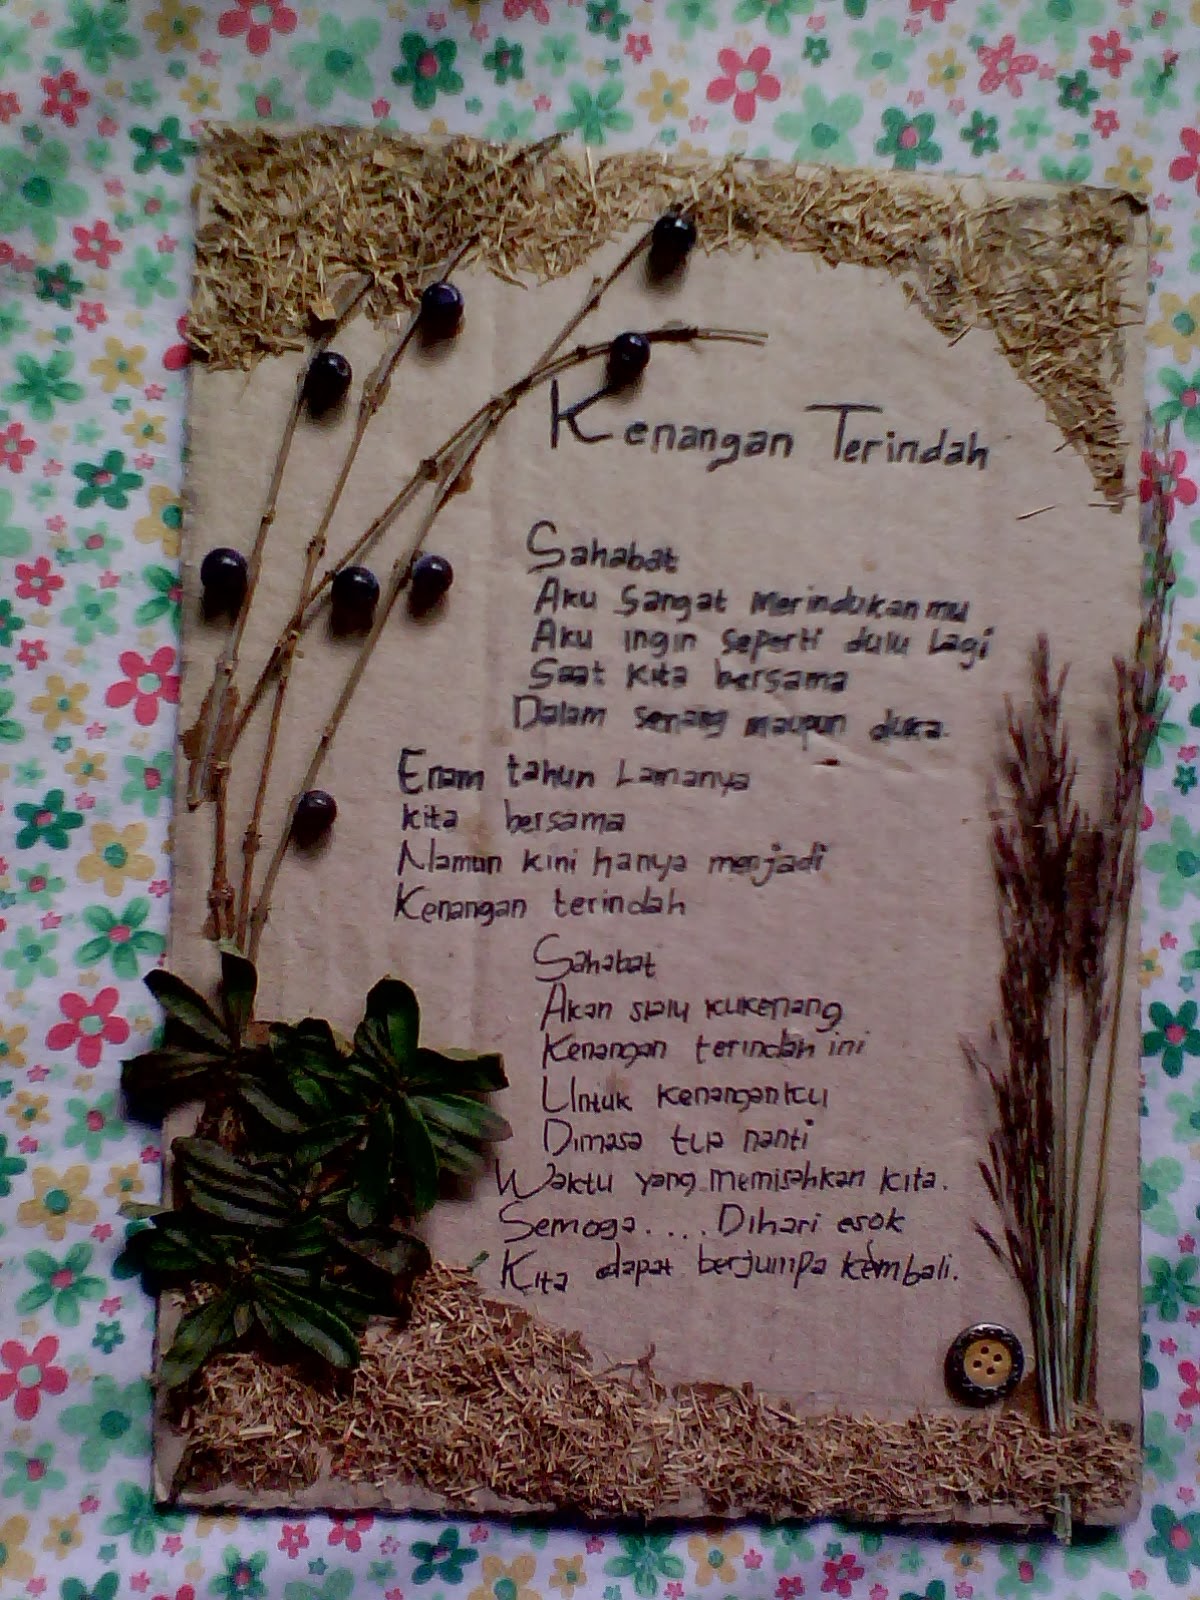 Kenangan Terindah
Sahabat
Aku Sangat Merindukanmu
Aku ingin seperti dulu Lagi
Saat kita bersama
Dalam senang maupun duka.
Enam tahun Lamanya
kita bersama
Namun kini hanya menjadi
Kenangan terindah
Sahabat
Akan slalu kukenang
Kenangan terindah ini
Untuk kenanganku
Dimasa tua nanti
Waktu yang memisahkan kita.
Semoga.... Dihari esok
Kita dapat berjumpa kembali.